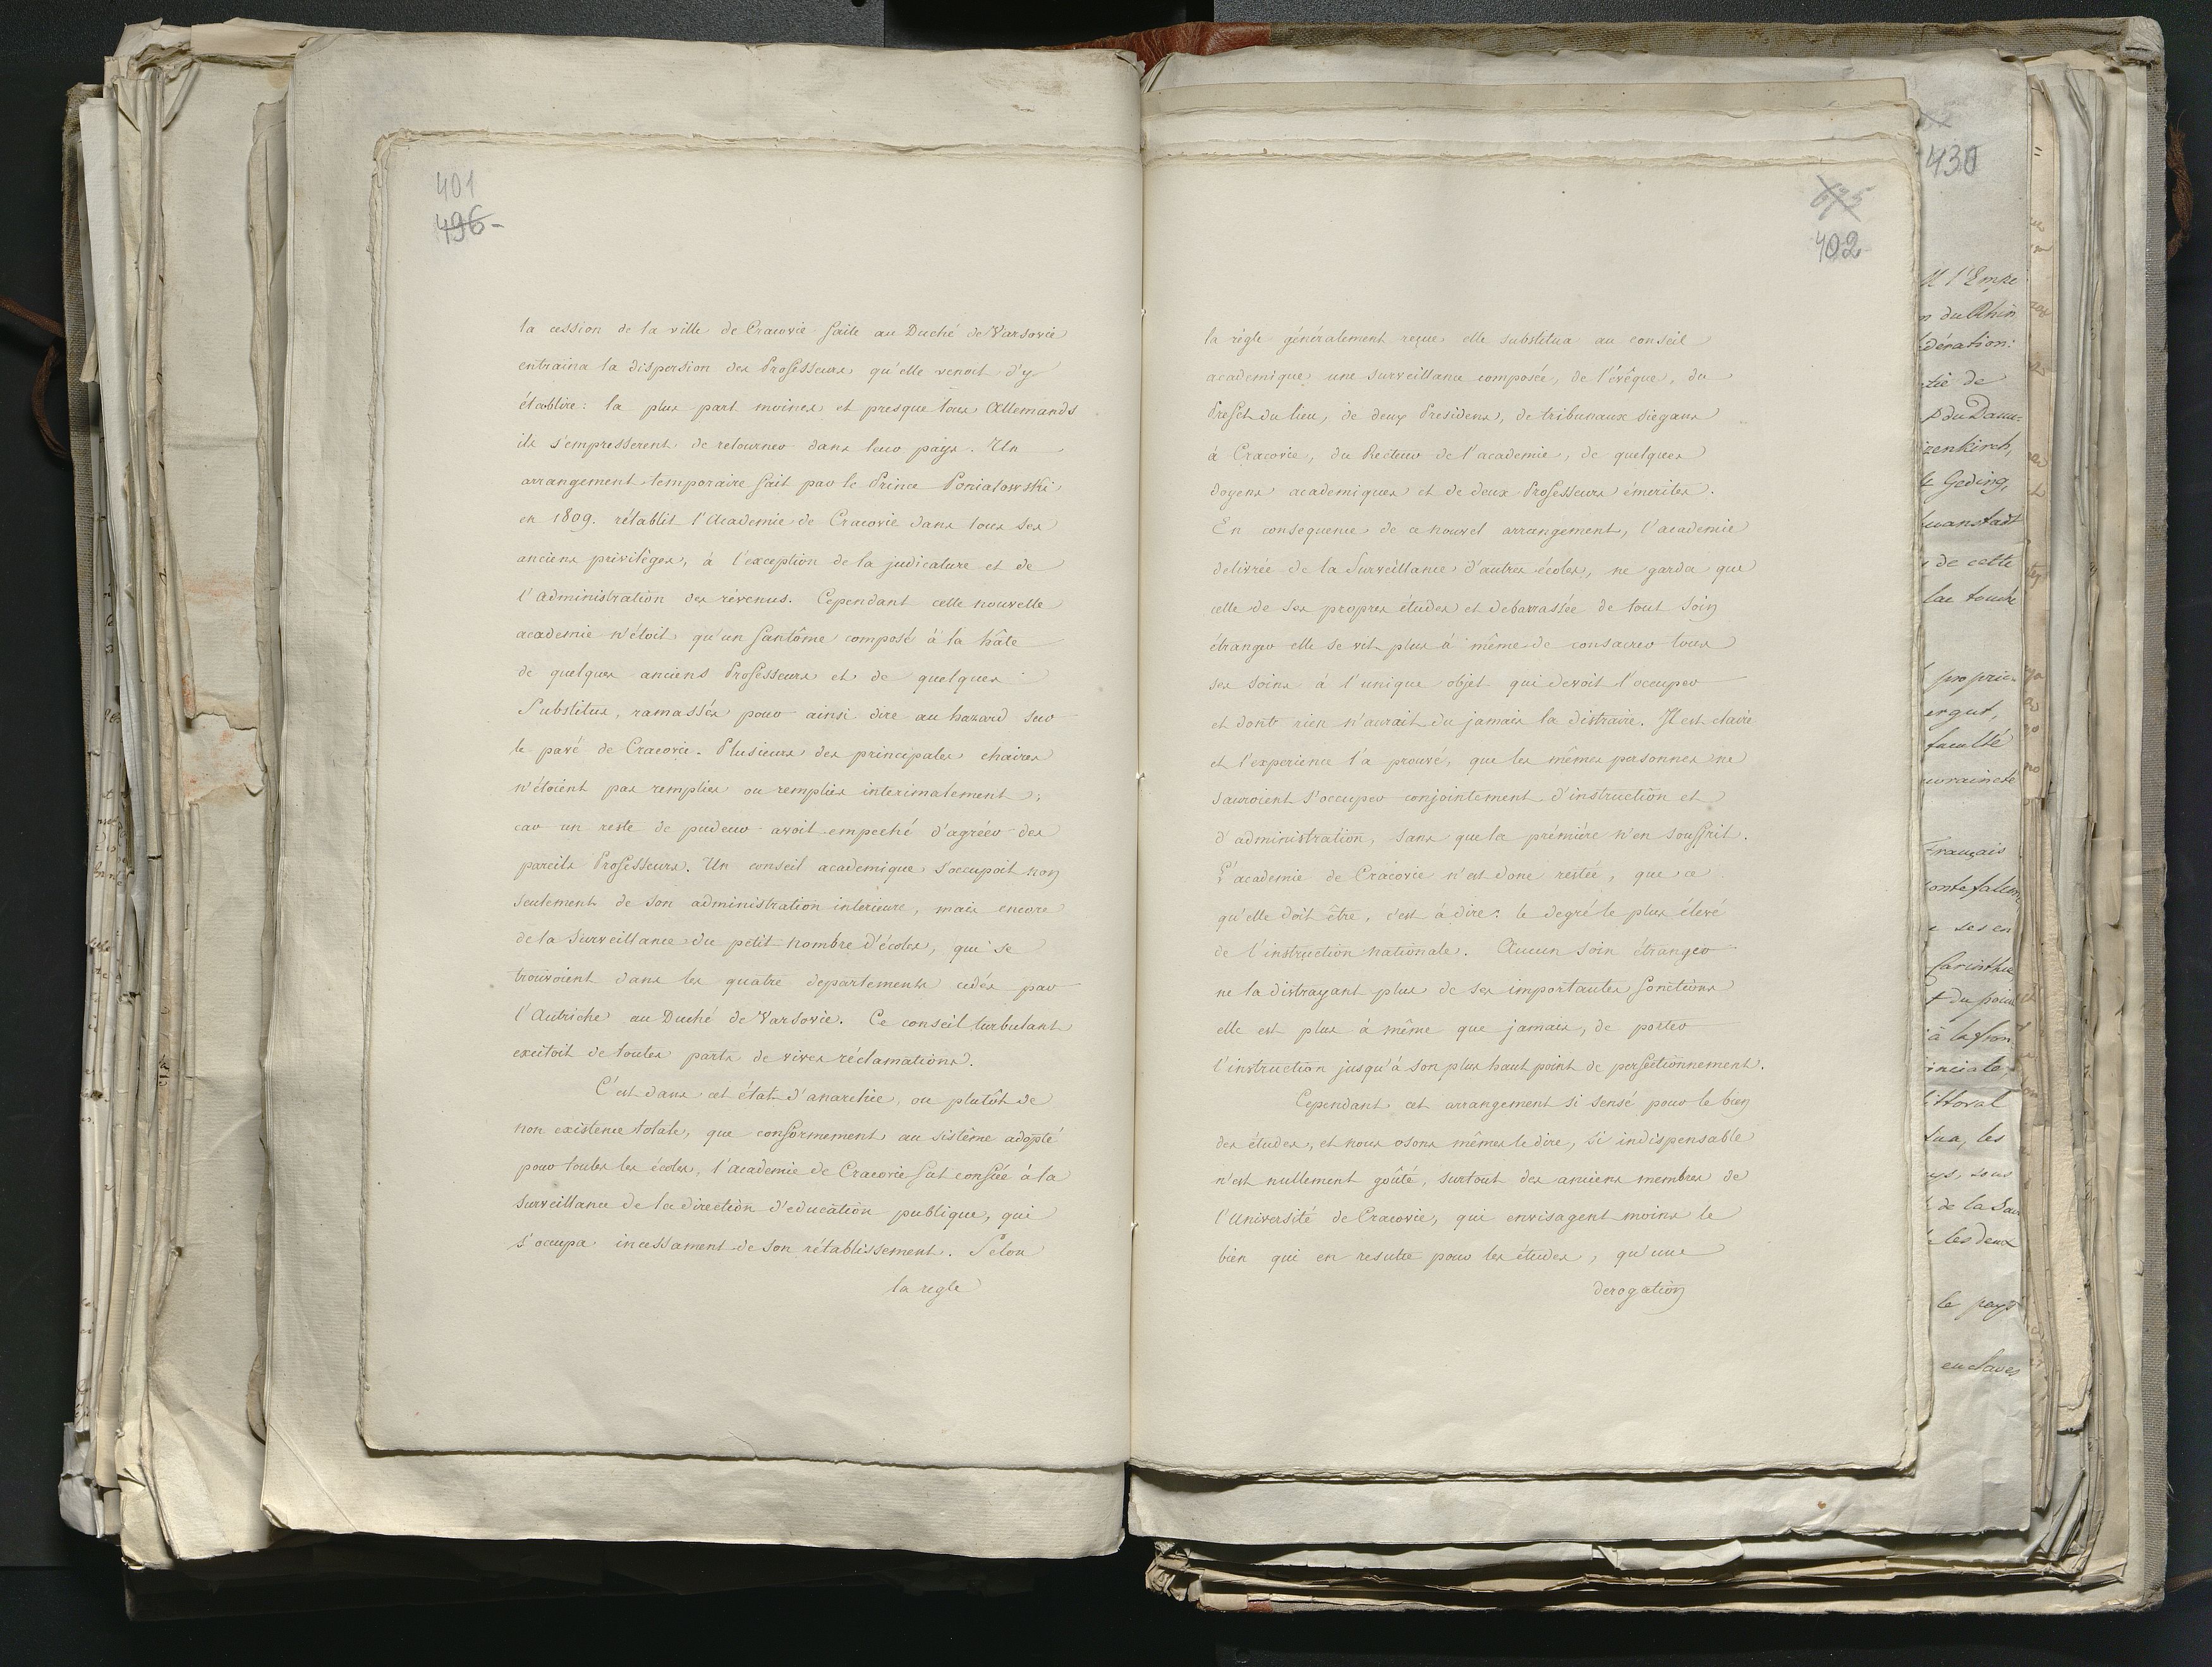 401
496-
la cession de la ville de Cracovie faite au Duché de Varsovie
entraina la dispersion des Professeurs qu'elle venoit d'y
établire: la plus part moines et presque tous Allemands
ils s'empresserent de retourner dans leur pays. Un
arrangement temporaire fait par le Prince Poniatowski
en 1809. rétablit l'Academie de Cracovie dans tous ses
anciens privilèges, à l'exception de la judicature et de
l'Administration des révenus. Cependant cette nouvelle
academie n'étoit qu'un fantôme composé à la hâte
de quelques anciens Professeurs et de quelques
Substitus, ramassés pour ainsi dire au hazard sur
le pavé de Cracovie. Plusieurs des principales chaires
n'étoient pas remplies ou remplies interimalement;
car un reste de pudeur avoit empeché d'agréer des
pareils Professeurs. Un conseil academique s'occupoit non
seulement de son administration interieure, mais encore
de la Surveillance du petit nombre d'écoles, qui se
trouvoient dans les quatre departements cedés par
l'Autriche au Duché de Varsovie. Ce conseil turbulant
excitoit de toutes parts de vives réclamations.
C'est dans cet état d'anarchie, ou plutôt de
non existence totale, que conformement au sistême adopté
pour toutes les écoles, l'academie de Cracovie fut confiée à la
surveillance de la direction d'education publique, qui
s'occupa incessament de son rétablissement. Selon
la regle
675
402
la règle généralement reçue elle substitua au conseil
academique une surveillance composée, de l'évêque, du
Prefet du lieu, de deux Presidens, de tribunaux siegans
à Cracovie, du Recteur de l'academie, de quelques
doyens academiques et de deux Professeurs émerites.
En consequence de ce nouvel arrangement, l'academie
delivrée de la Surveillance d'autres écoles, ne garda que
celle de ses propres études et debarrassée de tout soin
étranger elle se vit plus à même de consacrer tous
ses soins à l'unique objet qui devoit l'occuper
et dont rien n'aurait du jamais la distraire. Il est claire
et l'experience l'a prouvé, que les mêmes personnes ne
sauroient s'occuper conjointement d'instruction et
d'administration, sans que la prémière n'en souffrit.
L'academie de Cracovie n'est donc restée, que ce
qu'elle doit être, c'est à dire: le degré le plus élevé
de l'instruction nationale. Aucun soin étranger
ne la distrayant plus de ses importantes fonctions
elle est plus à même que jamais, de porter
l'instruction jusqu'à son plus haut point de perfectionnement.
Cependant cet arrangement si sensé pour le bien
des études, et nous osons mêmes le dire, si indispensable
n'est nullement goûté, surtout des anciens membres de
l'Université de Cracovie, qui envisagent moins le
bien qui en resulte pour les études, qu'une
derogation
430
l'Empe
du Rhin
dération:
de
du Danu-
zenkirch,
Geding,
de cette
touche
proprie-
faculté
Français
ses en
Carinthie
du point
à la fron
inciale
littoral
les
sous
de la Sav
les deux
le pays
enclaves